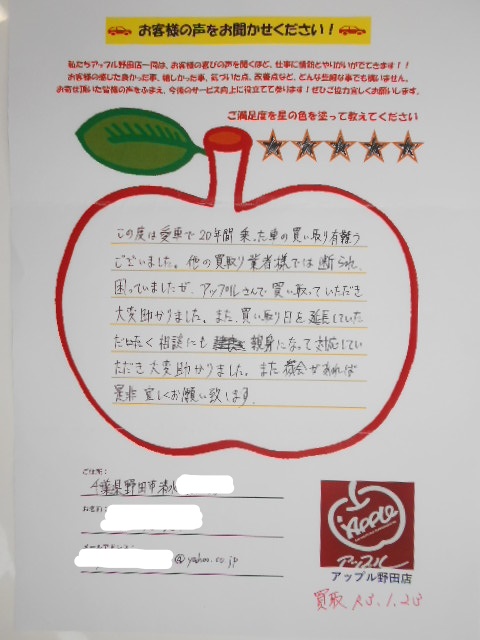 お客様の声をお聞かせください！
私たちアップル野田店一同は、お客様の喜びの声を聞くほど、仕事に情熱とやりがいがでてきます！！
お客様の感じた良かった事、嬉しかった事、気づいた点、改善点など、どんな些細な事でも構いません。
お寄せ頂いた皆様の声をふまえ、今後のサービス向上に役立てて参ります！ぜひご協力宜しくお願いします。
ご満足度を星の色を塗って教えてください
この度は愛車で20年間乗った車の買い取り有難う
ございました。他の買取り業者様では断られ、
困っていましたが、アップルさんで買い取っていただき
大変助かりました。また、買い取り日を延長していた
だいたく相談にも 親身になって対応してい
ただき大変助かりました。また機会があれば
是非宜しくお願い致します。
ご住所：
千葉県野田市清水
お名前：
メールアドレス：
@yahoo.co.jp
Apple
アップル
アップル野田店
買取 R3.1.23